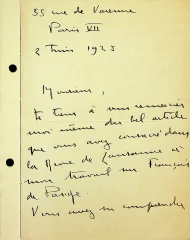 55 rue de Varenne
Paris VII
2 Juin 1925
Monsieur,
je tiens à vous remercier
moi même du bel article
que vous avez consacré dans
la de Lausanne à
mon travail sur François
de
Vous avez su comprendre